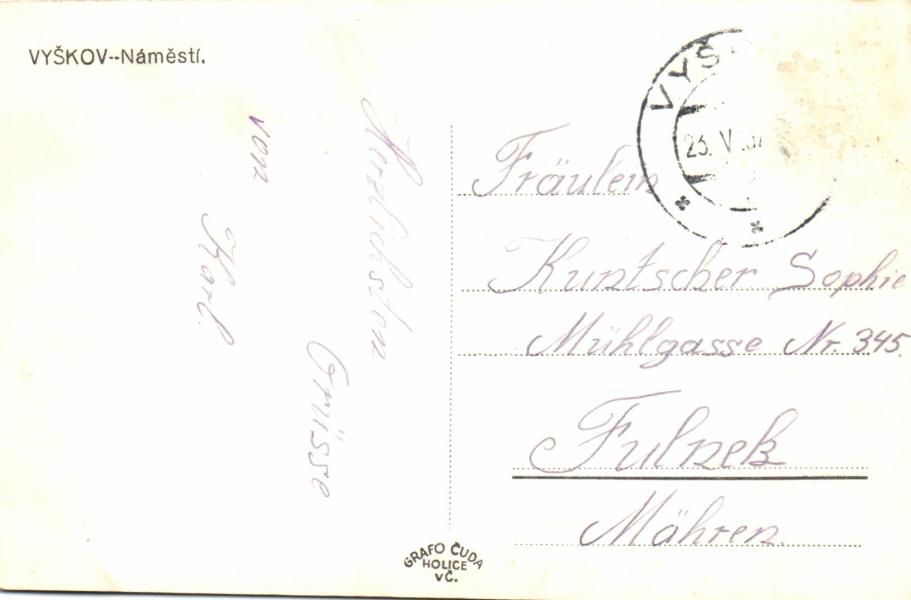 VYŠKOV--Náměstí.
Herzlichsten
Grüsse
von
Karl.
VYŠ
23. V. 37
Fräulein
Kuntscher Sophie
Mühlgasse Nr. 345.
Fulnek
Mähren.
GRAFO ČUDA
HOLICE
VČ.